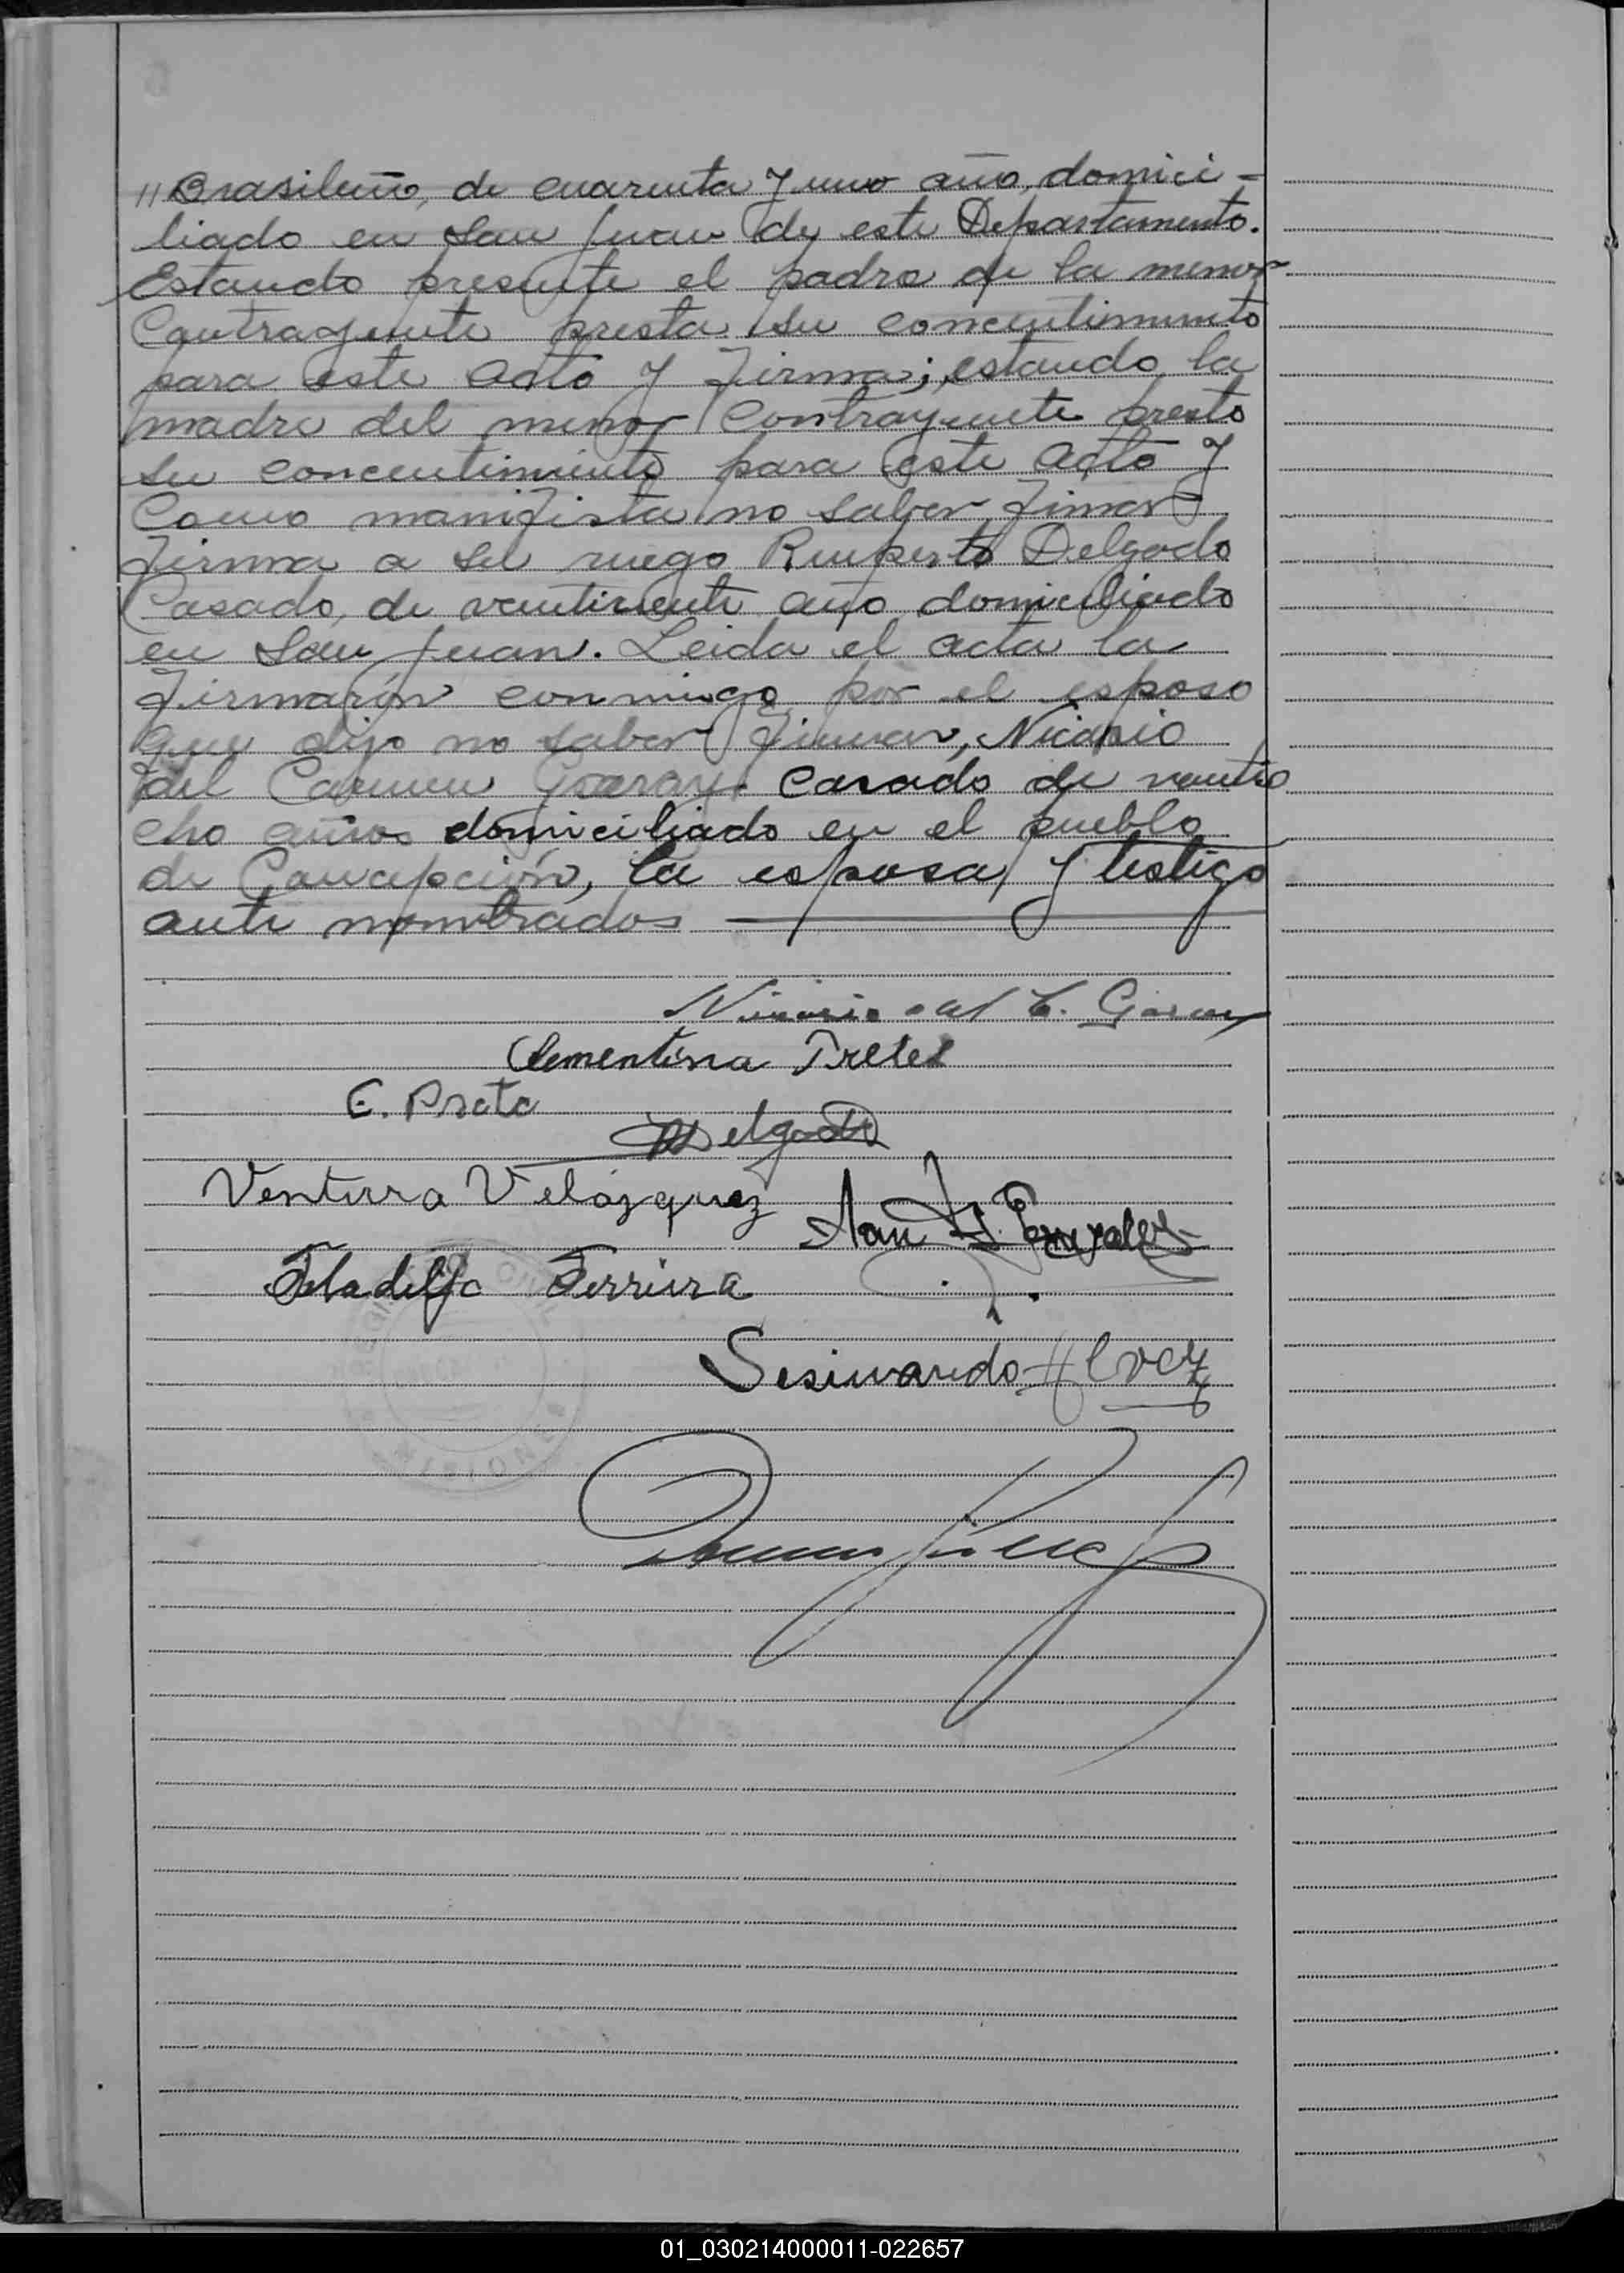 "Brasileño, de cuarenta y uno año, domici-
liado en San Juan de este Departamento.
Estando presente el padre de la menor
Contrayente presta su concentimiento
para este acto y firma; estando la
madre del menor Contrayente presto
su concentimiento para este acto y
Como manifista no saber fimar
firma a su ruego Ruperto Delgado
Casado, de ventisiente año domiciliado
en San Juan. Leida el acta la
firmarón conmigo por el esposo
que dijo no saber firmar, Nicasio
del Carmen Garay. Casado de ventio
cho años domiciliado en el pueblo
de Concepción, la esposa y testigo
ante nombrados
Nicasio del C. Garay
Clementina Pretel
E. Prete
Delgado
Ventura Velázquez
Gonzalez
Filadelfo Ferrüra
Sesinando
REGISTRO CIVIL
MISIONES
01_030214000011-022657